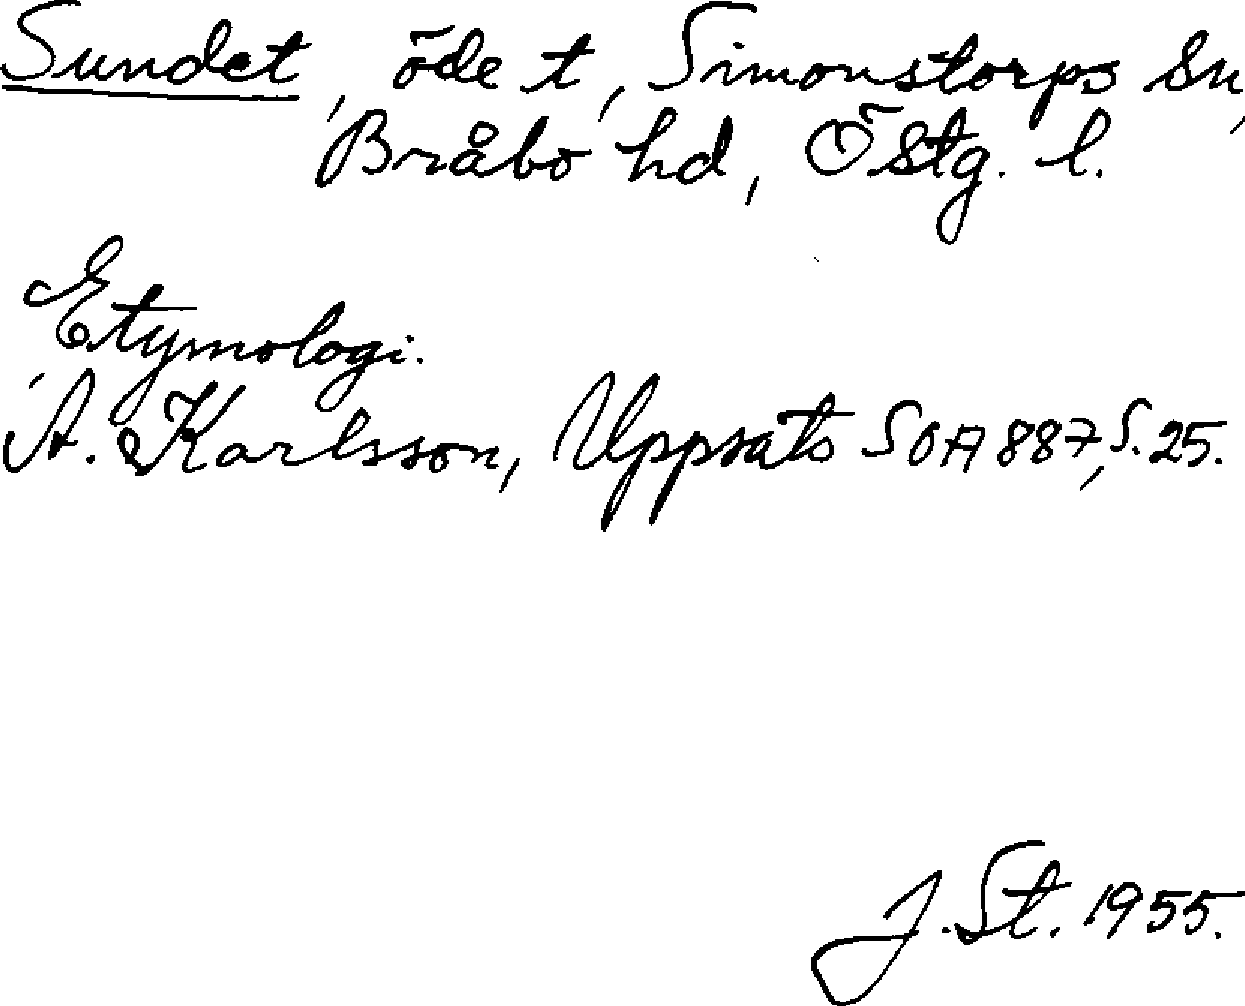 Sundet, öde t, Simonstorps sn,
Bråbo hd, Östg. l.
Etymologi.
A. Karlsson, Uppsats SOA 887, S. 25.
J. St. 1955.